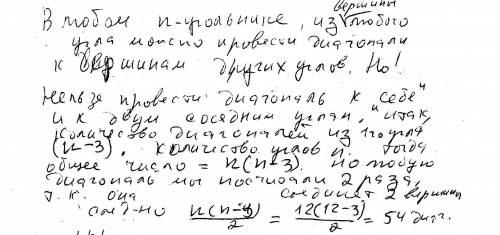 В любом n-угольнике, из вершины любого
угла можно провести диагонали
к вершинам других углов. Но!
Нельзя провести диагональ к "себе"
и к двум соседним углам, итак,
количество диагоналей из 1го угла
(n-3). количество углов n, тогда
общее число = n(n-3). но любую
диагональ мы посчитали 2 раза,
т.к. она соединяет 2 вершины
след-но n(n-3)/2 = 12(12-3)/2 = 54 диаг.